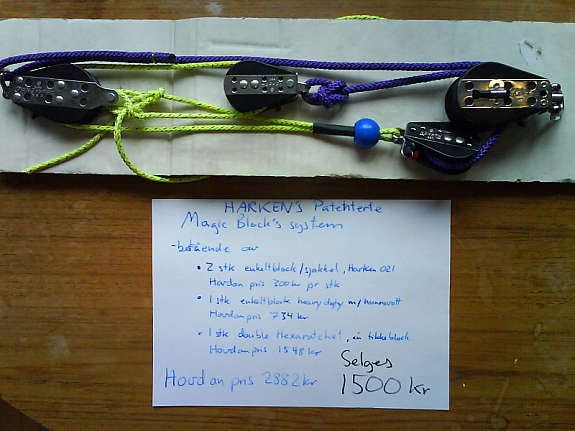 HARKEN'S Patenterte
Magic Block's system
-bestående av
• 2 stk enkeltblock/sjakkel, Harken 021
Hovdan pris 300kr pr stk
• 1 stk enkeltblock heavy duty m/hunnsvott
Hovdan pris 734 kr
• 1 stk double Hexaratchet, en tikkeblock
Hovdan pris 1548 kr
Hovdan pris 2882 kr
Selges
1500 kr